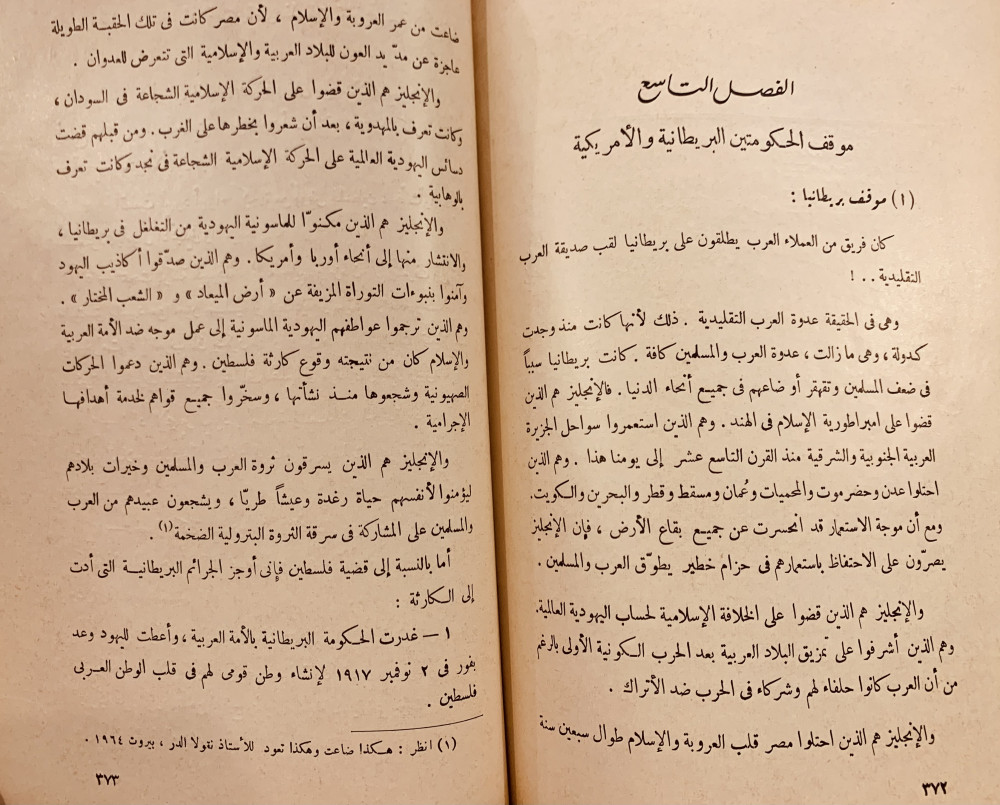 الفصل التاسع
موقف الحكومتين البريطانية والأمريكية
(١) موقف بريطانيا :
كان فريق من العملاء العرب يطلقون على بريطانيا لقب صديقة العرب
التقليدية .. !
وهى فى الحقيقة عدوة العرب التقليدية . ذلك لأنها كانت منذ وجدت
كدولة ، وهى ما زالت ، عدوة العرب والمسلمين كافة . كانت بريطانيا سبباً
فى ضعف المسلمين وتقهقر أوضاعهم فى جميع أنحاء الدنيا . فالإنجليز هم الذين
قضوا على امبراطورية الإسلام فى الهند . وهم الذين استعمروا سواحل الجزيرة
العربية الجنوبية والشرقية منذ القرن التاسع عشر إلى يومنا هذا . وهم الذين
احتلوا عدن وحضرموت والمحميات وعُمان ومسقط وقطر والبحرين والكويت.
ومع أن موجة الاستعمار قد انحسرت عن جميع بقاع الأرض ، فإن الإنجليز
يصرّون على الاحتفاظ باستعمارهم فى حزام خطير يطوّق العرب والمسلمين .
والإنجليز هم الذين قضوا على الخلافة الإسلامية لحساب اليهودية العالمية.
وهم الذين أشرفوا على تمزيق البلاد العربية بعد الحرب الكونية الأولى بالرغم
من أن العرب كانوا حلفاء لهم وشركاء فى الحرب ضد الأتراك .
والإنجليز هم الذين احتلوا مصر قلب العروبة والإسلام طوال سبعين سنة
٣٧٢
ضاعت من عمر العروبة والإسلام ، لأن مصر كانت فى تلك الحقبة الطويلة
عاجزة عن مدّ يد العون للبلاد العربية والإسلامية التى تتعرض للعدوان .
والإنجليز هم الذين قضوا على الحركة الإسلامية الشجاعة فى السودان ،
وكانت تعرف بالمهدوية ، بعد أن شعروا بخطرها على الغرب . ومن قبلهم قضت
دسائس اليهودية العالمية على الحركة الإسلامية الشجاعة فى نجد وكانت تعرف
بالوهابية .
والإنجليز هم الذين مكنوّا للماسونية اليهودية من التغلغل فى بريطانيا ،
والانتشار منها إلى أنحاء أوربا وأمريكا . وهم الذين صدّقوا أكاذيب اليهود
وآمنوا بنبوءات التوراة المزيفة عن « أرض الميعاد » و « الشعب المختار » .
وهم الذين ترجموا عواطفهم اليهودية الماسونية إلى عمل موجه ضد الأمة العربية
والإسلام كان من نتيجته وقوع كارثة فلسطين . وهم الذين دعموا الحركات
الصهيونية وشجعوها منذ نشأتها ، وسخّروا جميع قواهم لخدمة أهدافها
الإجرامية .
والإنجليز هم الذين يسرقون ثروة العرب والمسلمين وخيرات بلادهم
ليؤمنوا لأنفسهم حياة رغدة وعيشاً طريّا ، ويشجعون عبيدهم من العرب
والمسلمين على المشاركة فى سرقة الثروة البترولية الضخمة(١) .
أما بالنسبة إلى قضية فلسطين فإنى أوجز الجرائم البريطانية التى أدت
إلى الكارثة :
١ – غدرت الحكومة البريطانية بالأمة العربية ، وأعطت لليهود وعد
بفور فى ٢ نوفمبر ١٩١٧ لإنشاء وطن قومى لهم فى قلب الوطن العربى
فلسطين .
(١) انظر : هكذا ضاعت وهكذا تعود للأستاذ نقولا الدر ، بيروت ١٩٦٤ .
٣٧٣